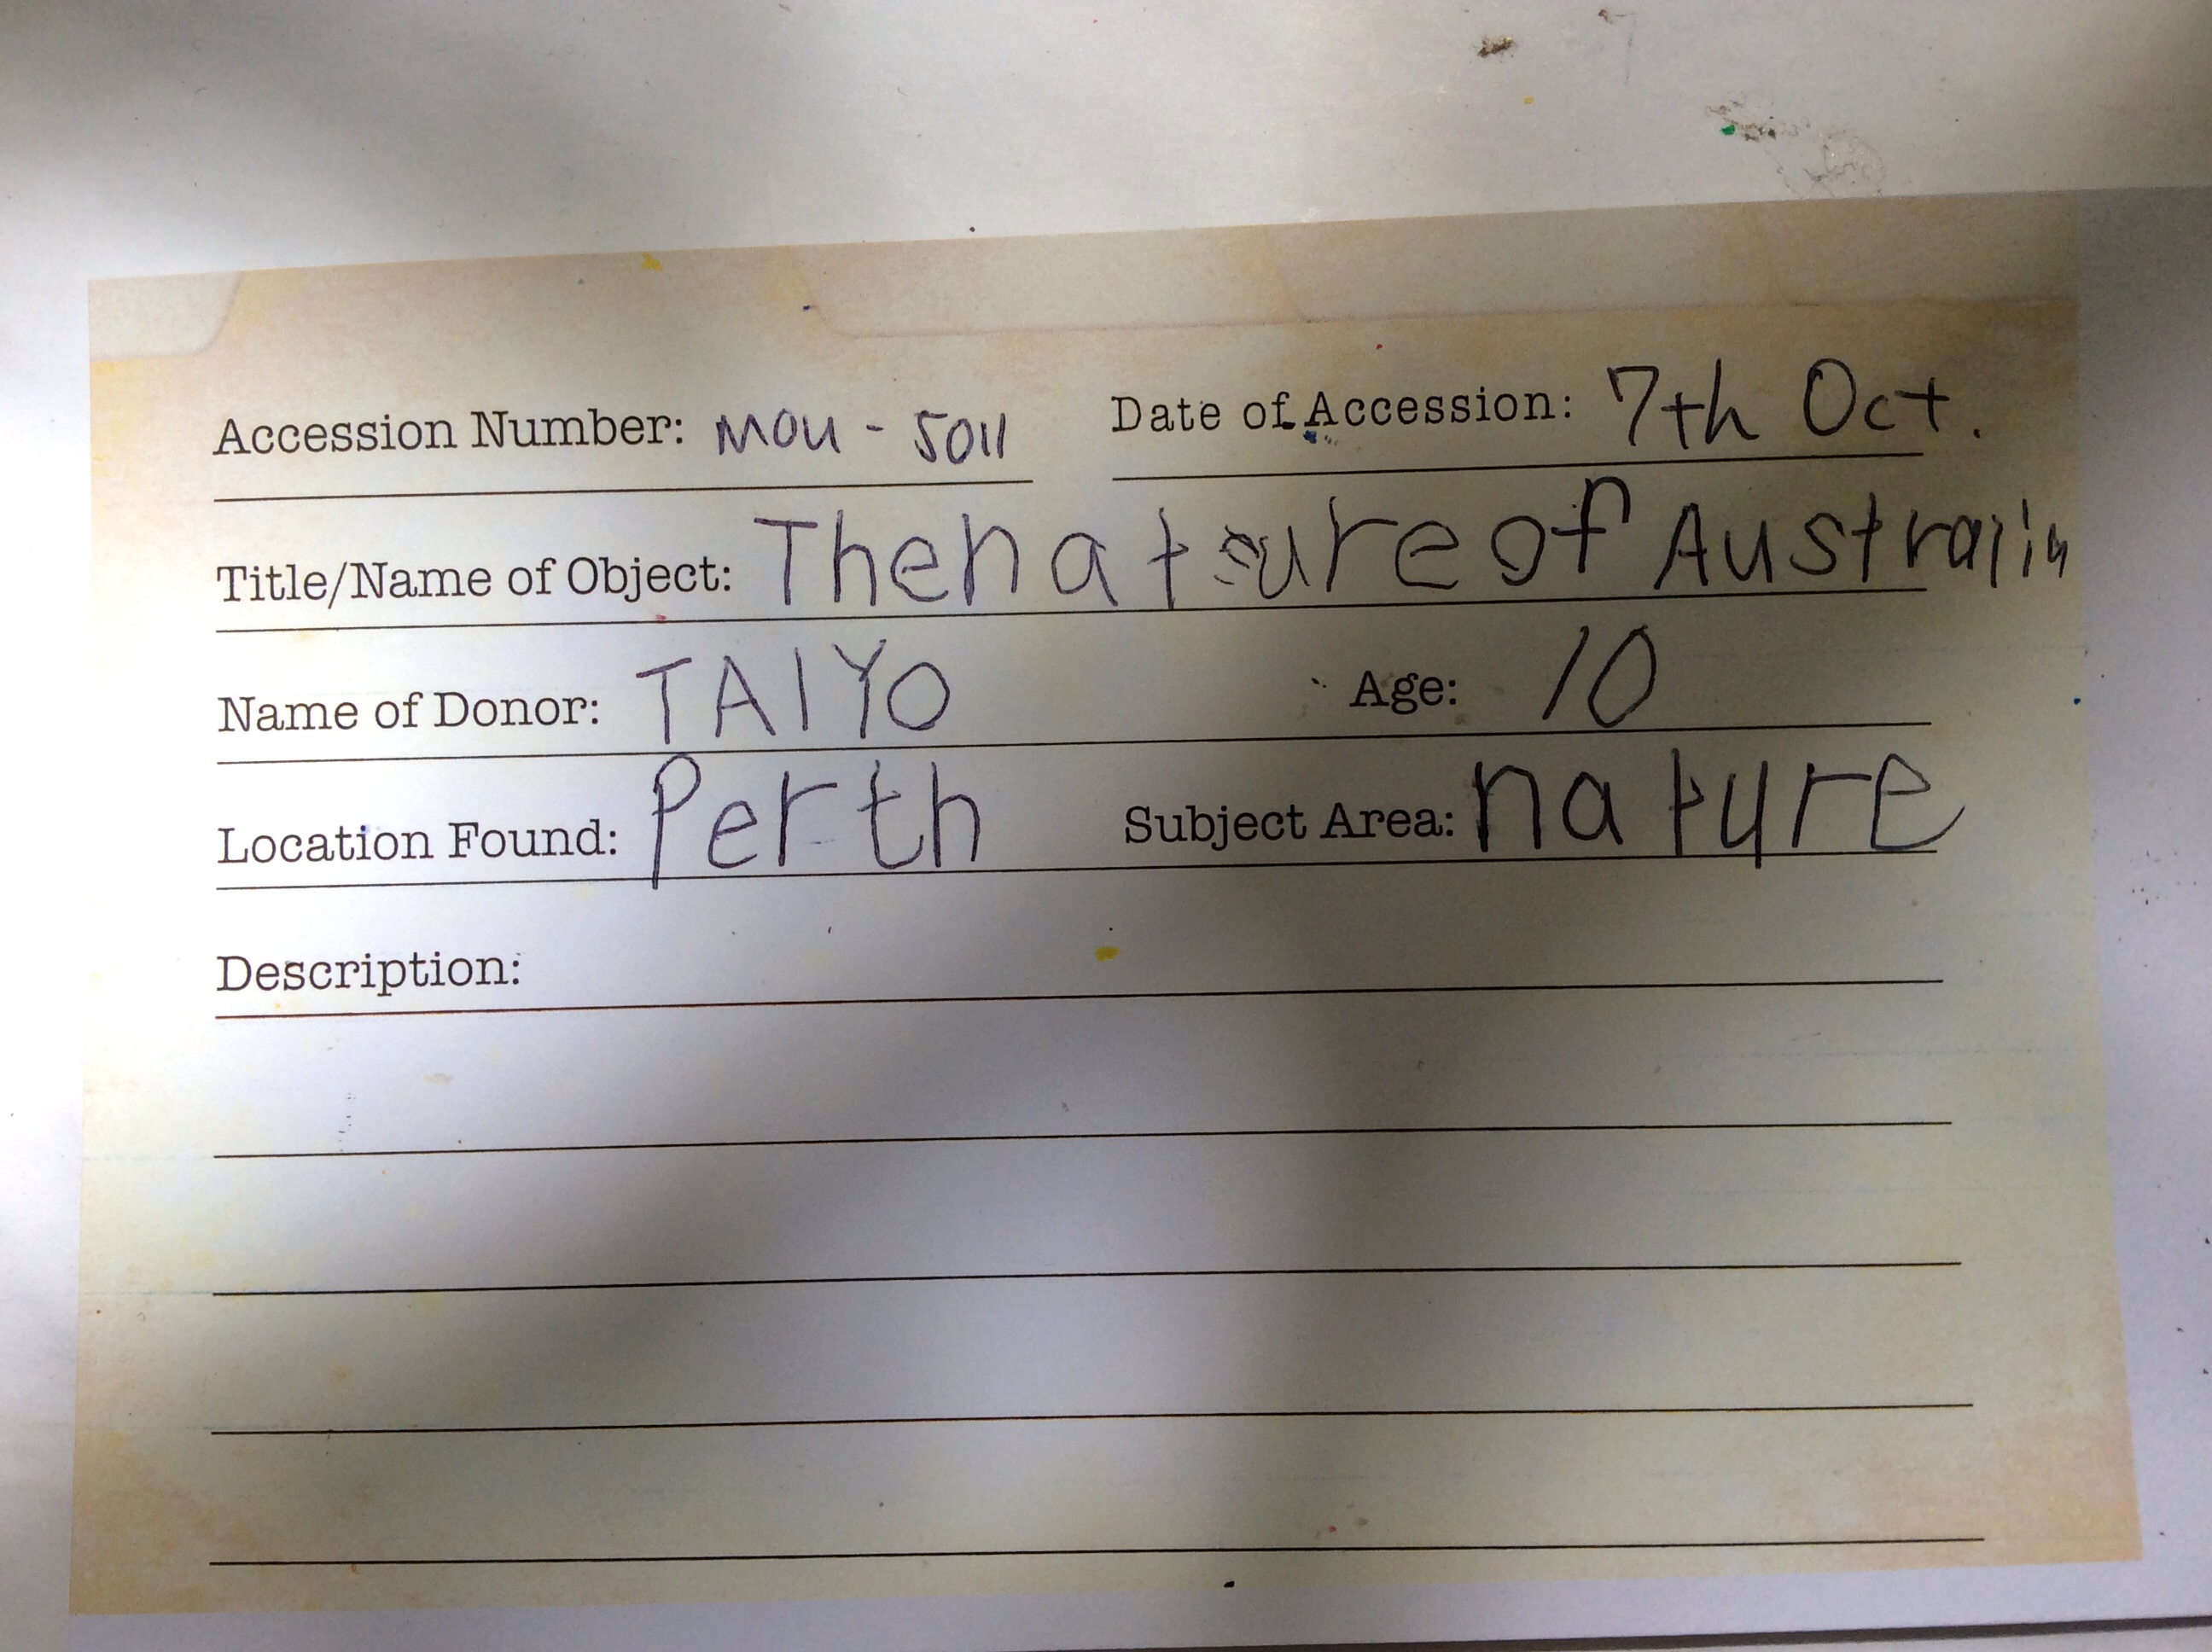 Accession Number: MOU - 5011 Date of Accession: 7th Oct.
Title/Name of Object: The nature of Australia
Name of Donor: TAIYO Age: 10
Location Found: Perth Subject Area: nature
Description: